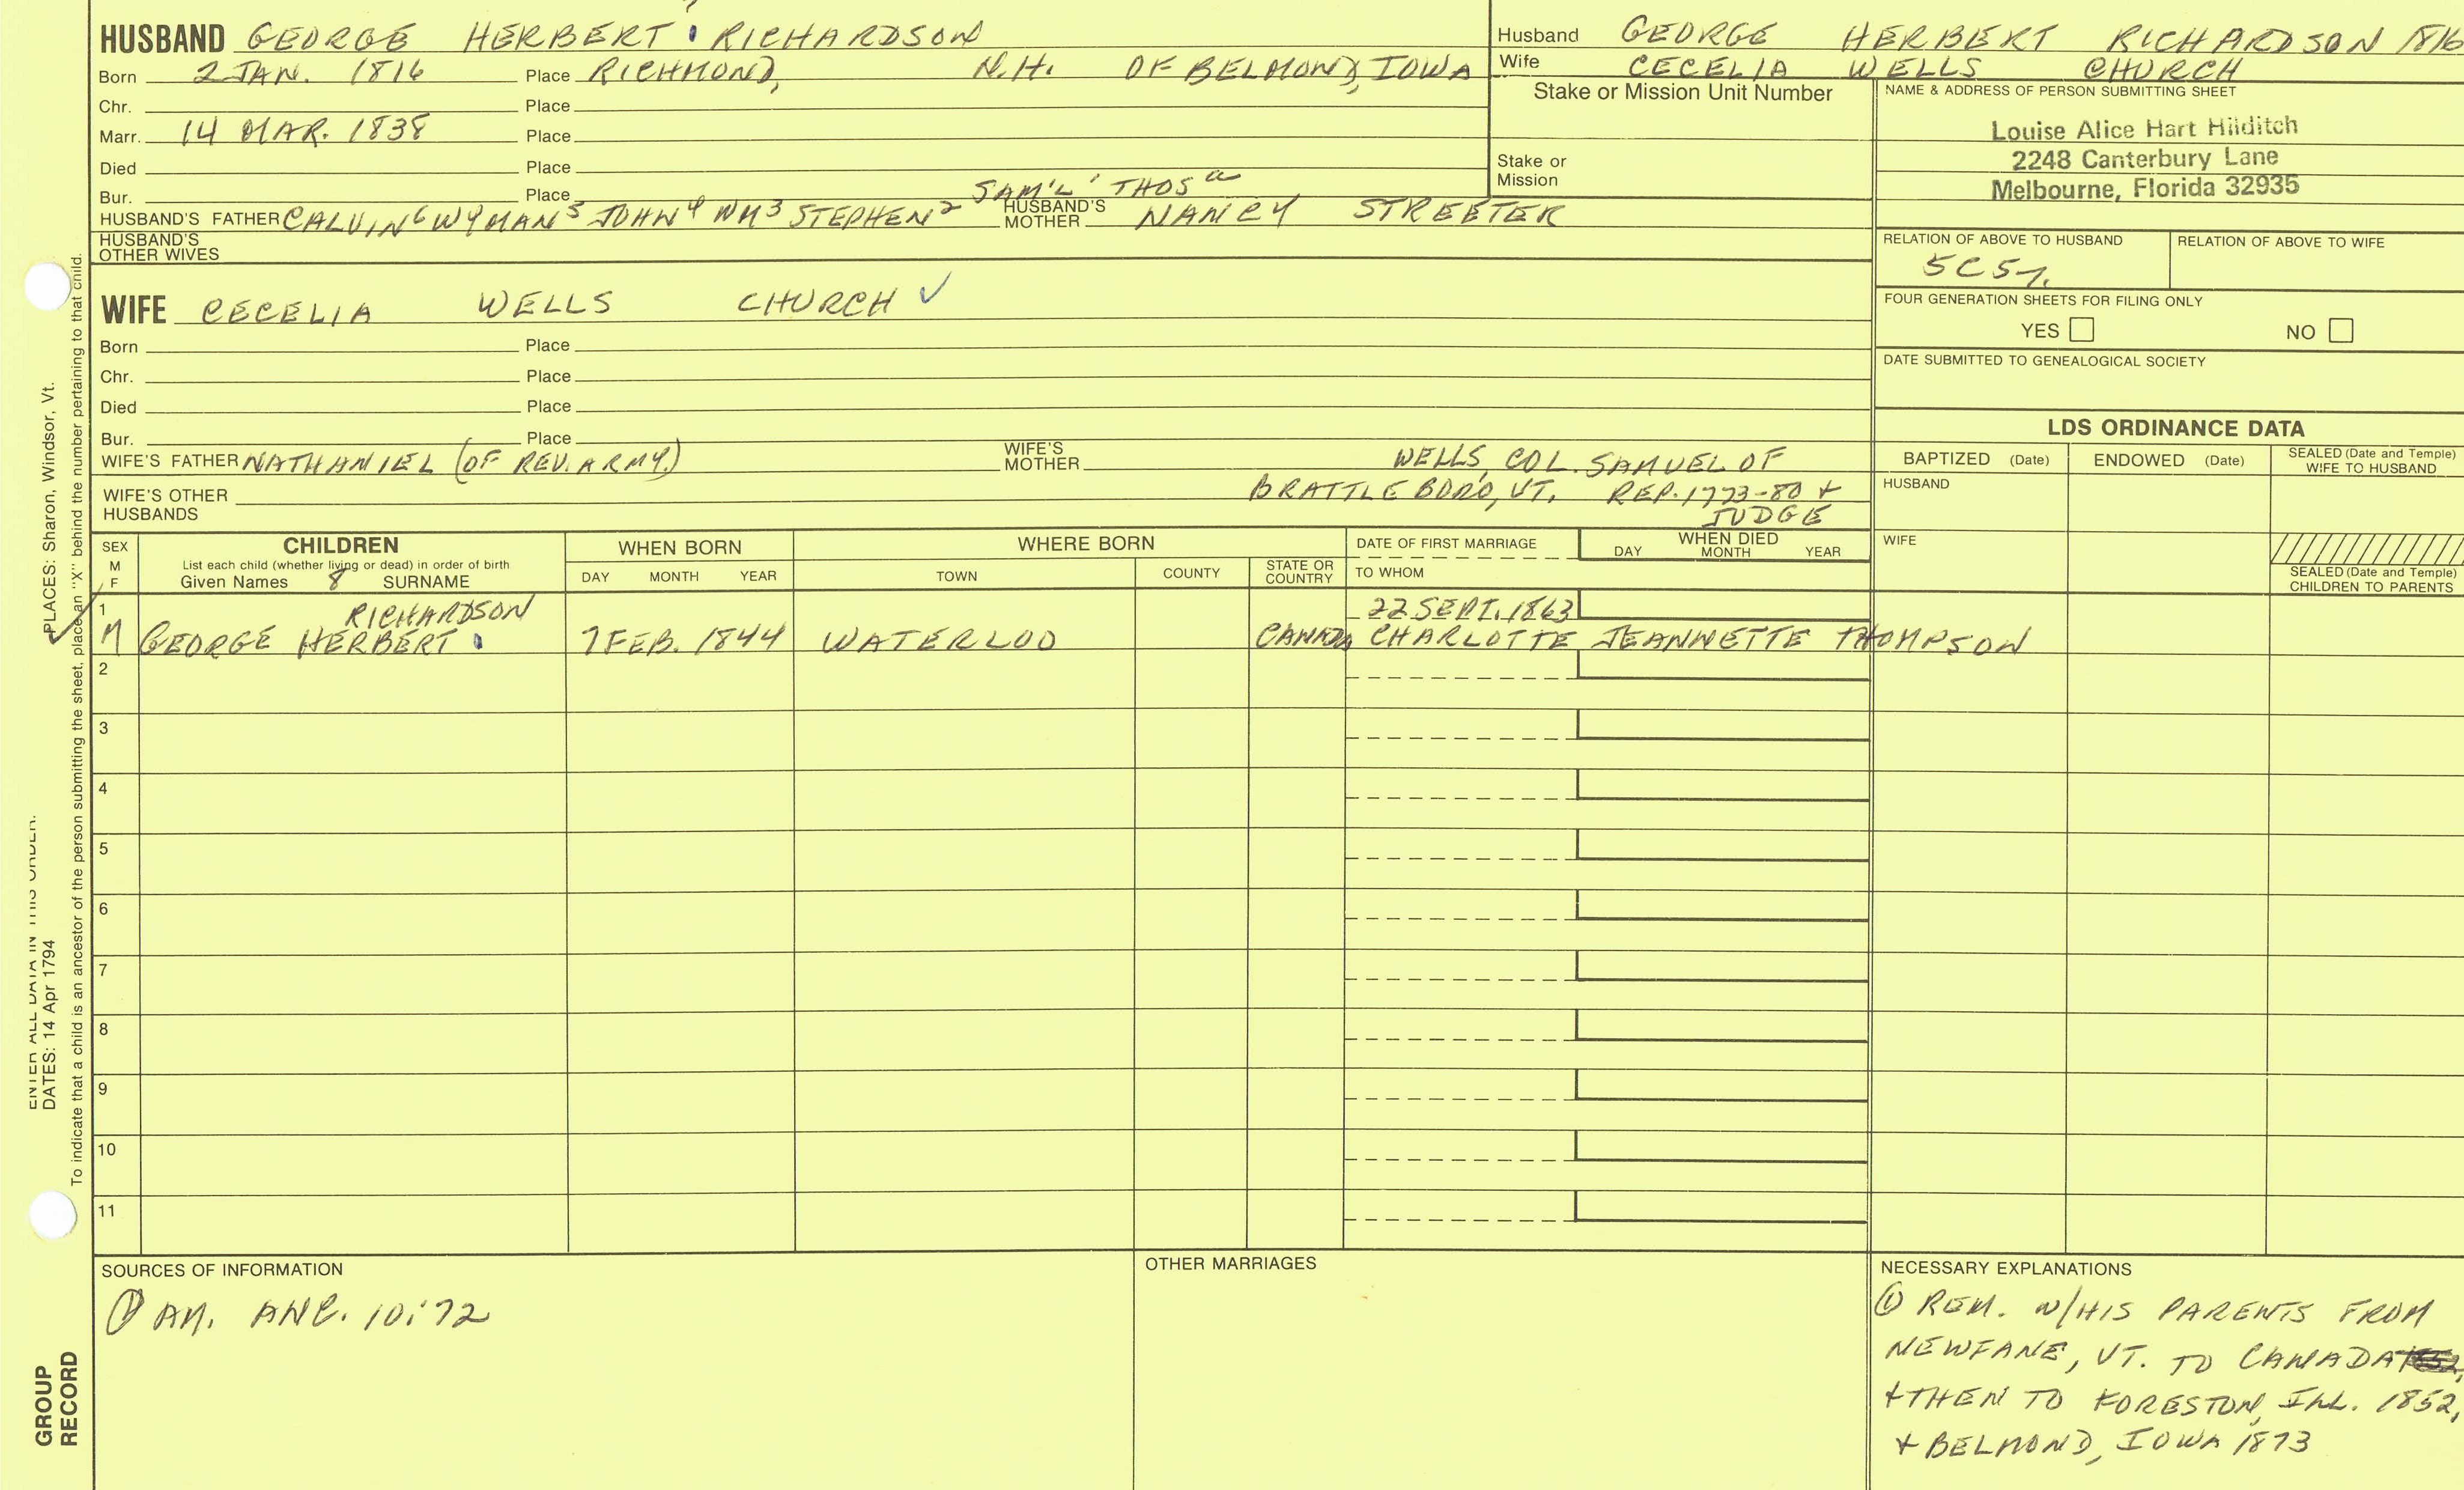 HUSBAND GEORGE HERBERT RICHARDSON
Born 2 JAN. 1816 Place RICHMOND, N.H. OF BELMOND, IOWA
Chr. Place
Marr. 14 MAR. 1838 Place
Died Place
Bur. Place
SAM'L' THOS a
HUSBAND'S FATHER CALVIN6 WYMAN5 JOHN4 WM3 STEPHEN2 HUSBAND'S MOTHER NANCY STREETER
HUSBAND'S OTHER WIVES
Husband GEORGE HERBERT RICHARDSON 1816
Wife CECELIA WELLS CHURCH
Stake or Mission Unit Number
Stake or Mission
NAME & ADDRESS OF PERSON SUBMITTING SHEET
Louise Alice Hart Hilditch
2248 Canterbury Lane
Melbourne, Florida 32935
RELATION OF ABOVE TO HUSBAND RELATION OF ABOVE TO WIFE
FOUR GENERATION SHEETS FOR FILING ONLY
YES NO
DATE SUBMITTED TO GENEALOGICAL SOCIETY
WIFE CECELIA WELLS CHURCH ✓
Born Place
Chr. Place
Died Place
Bur. Place
WIFE'S FATHER NATHANIEL (OF REV. ARMY.) WIFE'S MOTHER WELLS, COL. SAMUEL OF
BRATTLEBORO, VT. REP. 1773-80 +
JUDGE
WIFE'S OTHER HUSBANDS
LDS ORDINANCE DATA
BAPTIZED (Date) ENDOWED (Date) SEALED (Date and Temple) WIFE TO HUSBAND
HUSBAND
WIFE
SEALED (Date and Temple) CHILDREN TO PARENTS
SEX M F
CHILDREN
List each child (whether living or dead) in order of birth
Given Names 8 SURNAME
WHEN BORN
DAY MONTH YEAR
WHERE BORN
TOWN COUNTY STATE OR COUNTRY
DATE OF FIRST MARRIAGE
TO WHOM
WHEN DIED
DAY MONTH YEAR
1 RICHARDSON 22 SEPT. 1863
M GEORGE HERBERT 7 FEB. 1844 WATERLOO CANADA CHARLOTTE JEANNETTE THOMPSON
2
3
4
5
6
7
8
9
10
11
SOURCES OF INFORMATION
① AM. ANC. 10:72
OTHER MARRIAGES
NECESSARY EXPLANATIONS
① REM. W/HIS PARENTS FROM
NEWFANE, VT. TO CANADA
+ THEN TO FORESTON, ILL. 1852,
+ BELMOND, IOWA 1873
ENTER ALL DATA IN THIS ORDER:
PLACES: Sharon, Windsor, Vt.
DATES: 14 Apr 1794
To indicate that a child is an ancestor of the person submitting the sheet, place an "X" behind the number pertaining to that child.
GROUP
RECORD